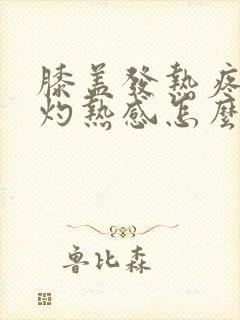 膝盖發熱疼
灼熱感怎麼
魯比森